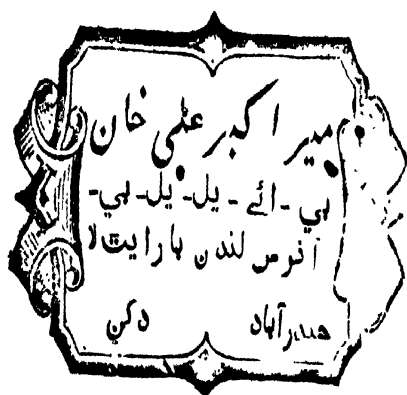 میر اکبر علی خان
بی - ائے - یل - یل - بی -
آنرس لندن بارایٹ لا
حیدرآباد دکن